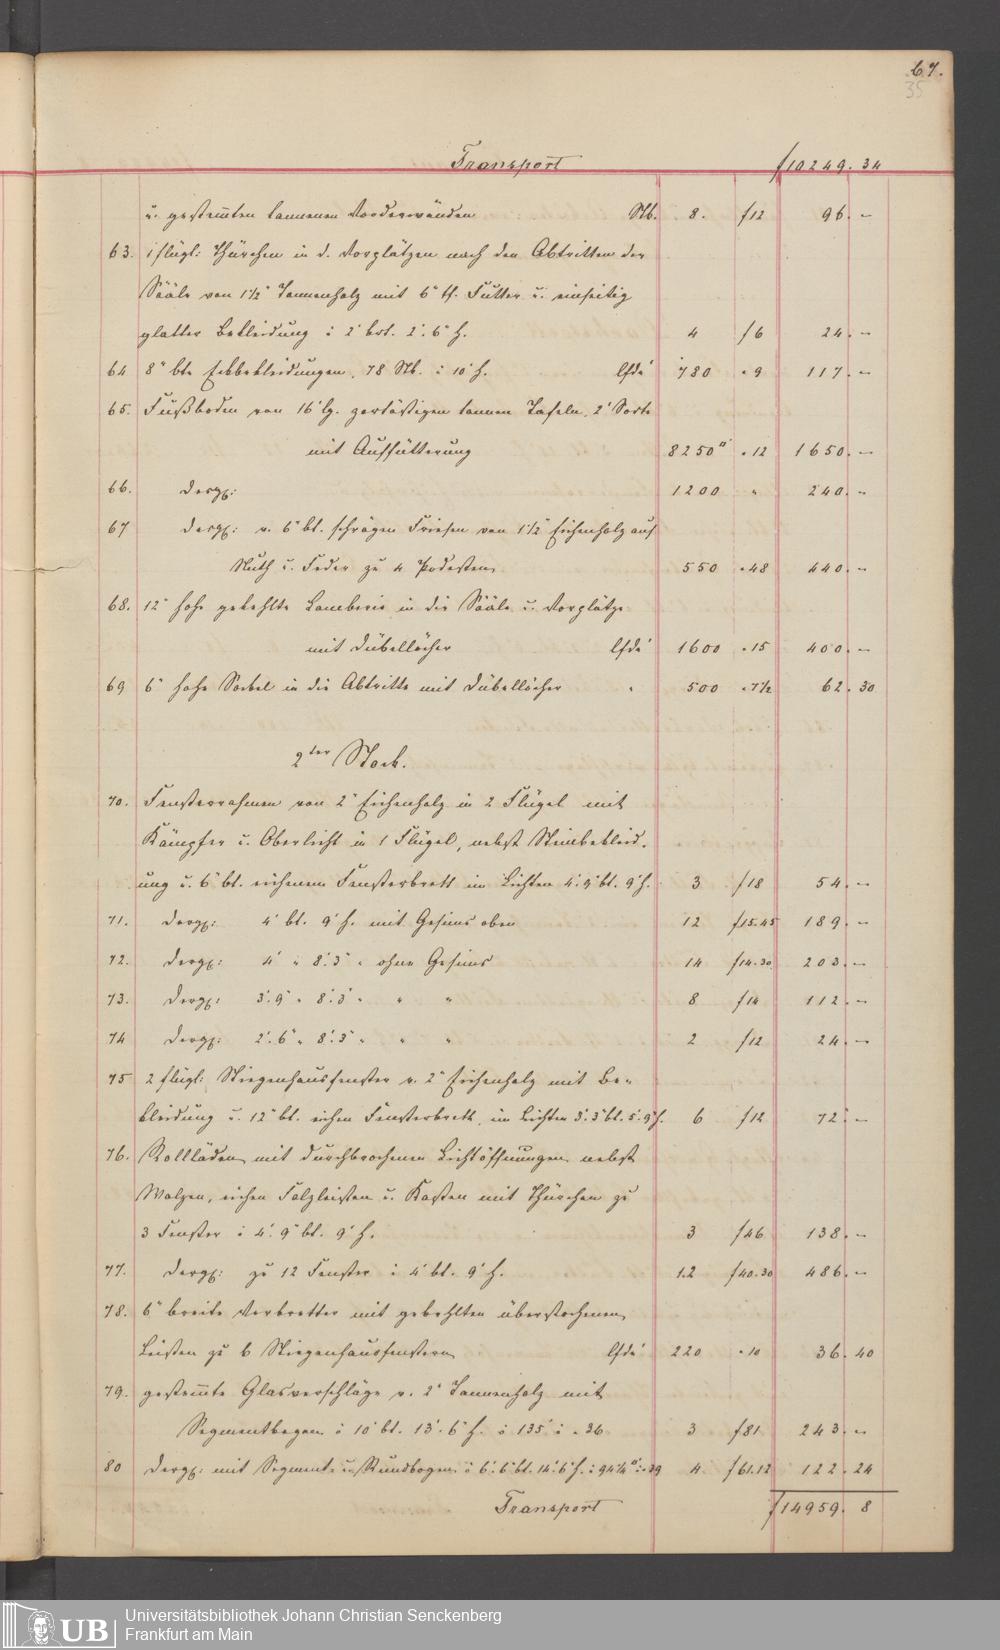 67.
35
Transport f 10249. 34
u. gestemten tannenen Vorderwänden Stk. 8. f 12 96. –
63. 1 flügl: Thürchen in d. Vorplätzen nach den Abtritten der
Sääle von 1½" Tannenholz mit 6" tf. Futter u. einseitig
glatter Bekleidung : 2' brt. 2'. 6" h. 4 f 6 24. –
64 8" bte Eckbekleidungen, 78 Stk. : 10' h. lfde' 780 " 9 117. –
65. Fußboden von 16' lg. gertästigen tannen Tafeln, 2' Sorte
mit Auffütterung 8250□' " 12 1650. –
66. desgl: 1200 " 240. –
67 desgl: v. 6" bt. schrägen Friesen von 1½" Eichenholz auf
Nuth u. Feder zu 4 Podesten 550 " 48 440. –
68. 12" hohe gekehlte Lamberie in die Sääle u. Vorplätze
mit Dübellöcher lfde' 1600 " 15 400. –
69 6" hohe Sockel in die Abtritte mit Dübellöcher " 500 " 7½ 62. 30
2ter Stock.
70. Fensterrahmen von 2" Eichenholz in 2 Flügel mit
Kämpfer u. Oberlicht in 1 Flügel, nebst Steinbekleid-
ung u. 6" bt. eichenem Fensterbrett im Lichten 4'. 9" bt. 9' h. 3 f 18 54. –
71. desgl: 4' bt. 9' h. mit Gesims oben 12 f 15.45 189. –
72. desgl: 4' " 8'. 3" " ohne Gesims 14 f 14.30 203. –
73. desgl: 3'. 9" " 8'. 3" " " " 8 f 14 112. –
74 desgl: 2'. 6" " 8'. 3" " " " 2 f 12 24. –
75 2 flügl: Stiegenhausfenster v. 2" Eichenholz mit Be-
kleidung u. 12" bt. eichen Fensterbrett, im Lichten 3'. 3" bt. 5'. 9" h. 6 f 12 72. –
76. Rollläden mit durchbrochenen Lichtöffnungen nebst
Walzen, eichen Falzleisten u. Kasten mit Thürchen zu
3 Fenster : 4'. 9" bt. 9' h. 3 f 46 138. –
77. desgl: zu 12 Fenster : 4' bt. 9' h. 12 f 40.30 486. –
78. 6" breite Verbretter mit gekehlten überstochenen
Leisten zu 6 Stiegenhausfenstern lfde' 220 " 10 36. 40
79. gestemte Glasverschläge v. 2" Tannenholz mit
Segmentbogen : 10' bt. 13'. 6" h. : 135' : " 36 3 f 81 243. –
80 desgl: mit Segment- u. Rundbogen : 6'. 6" bt. 14'. 6" h. : 94¼□' : " 39 4. f 61.12 122. 24
Transport f 14959. 8
UB Universitätsbibliothek Johann Christian Senckenberg
Frankfurt am Main